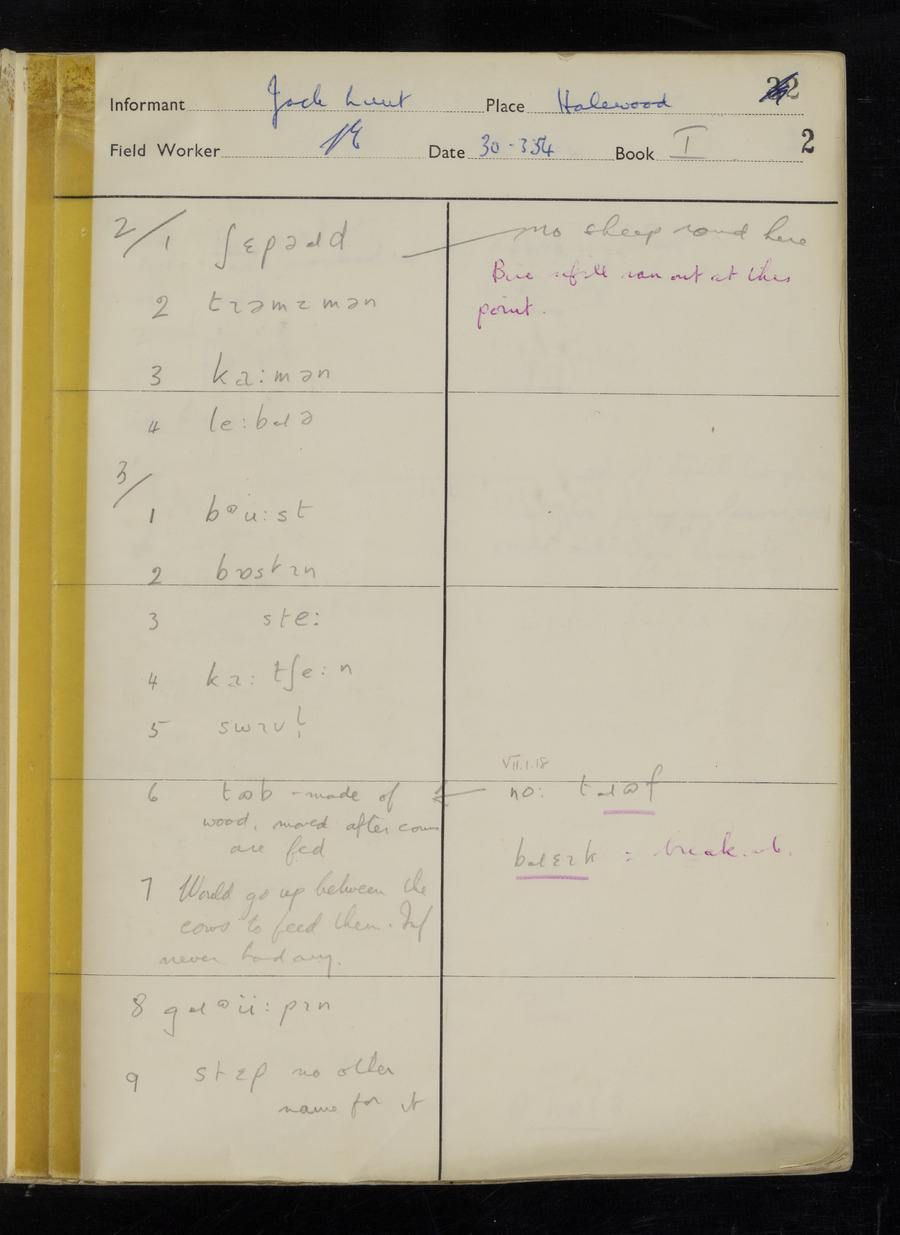 22
Informant Jack Lunt Place Halewood
Field Worker Date 30-3-54 Book I 2
2/1 ʃɛpəɹd no sheep round here
Biro refill ran out at this
point.
2 tɪəmzmən
3 ka:mən
4 le:bɹə
3/
1 bəu:st
2 bɒstɪn
3 ste:
4 ka: tʃe: n
5 swɪvl̩
VII.1.18
6 tɷb - made of no: tɹɒf
wood, moved after cows
are fed
bɹɛɪk = break. vb.
7 Would go up between the
cows to feed them. Inf
never had any.
8 gɹəü:pɪn
9 stɛp no other
name for it